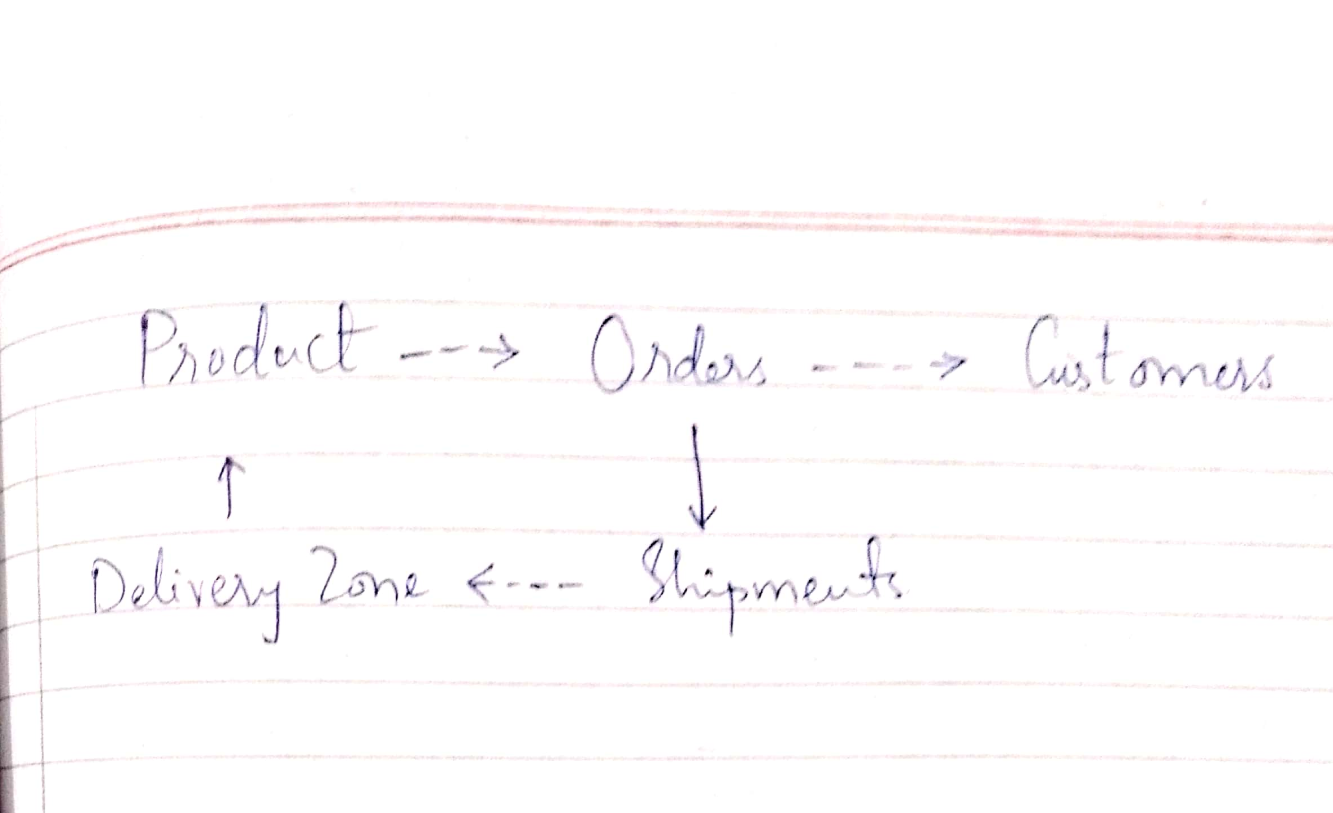 Product ---> Orders ----> Customers
↑ ↓
Delivery Zone <--- Shipments